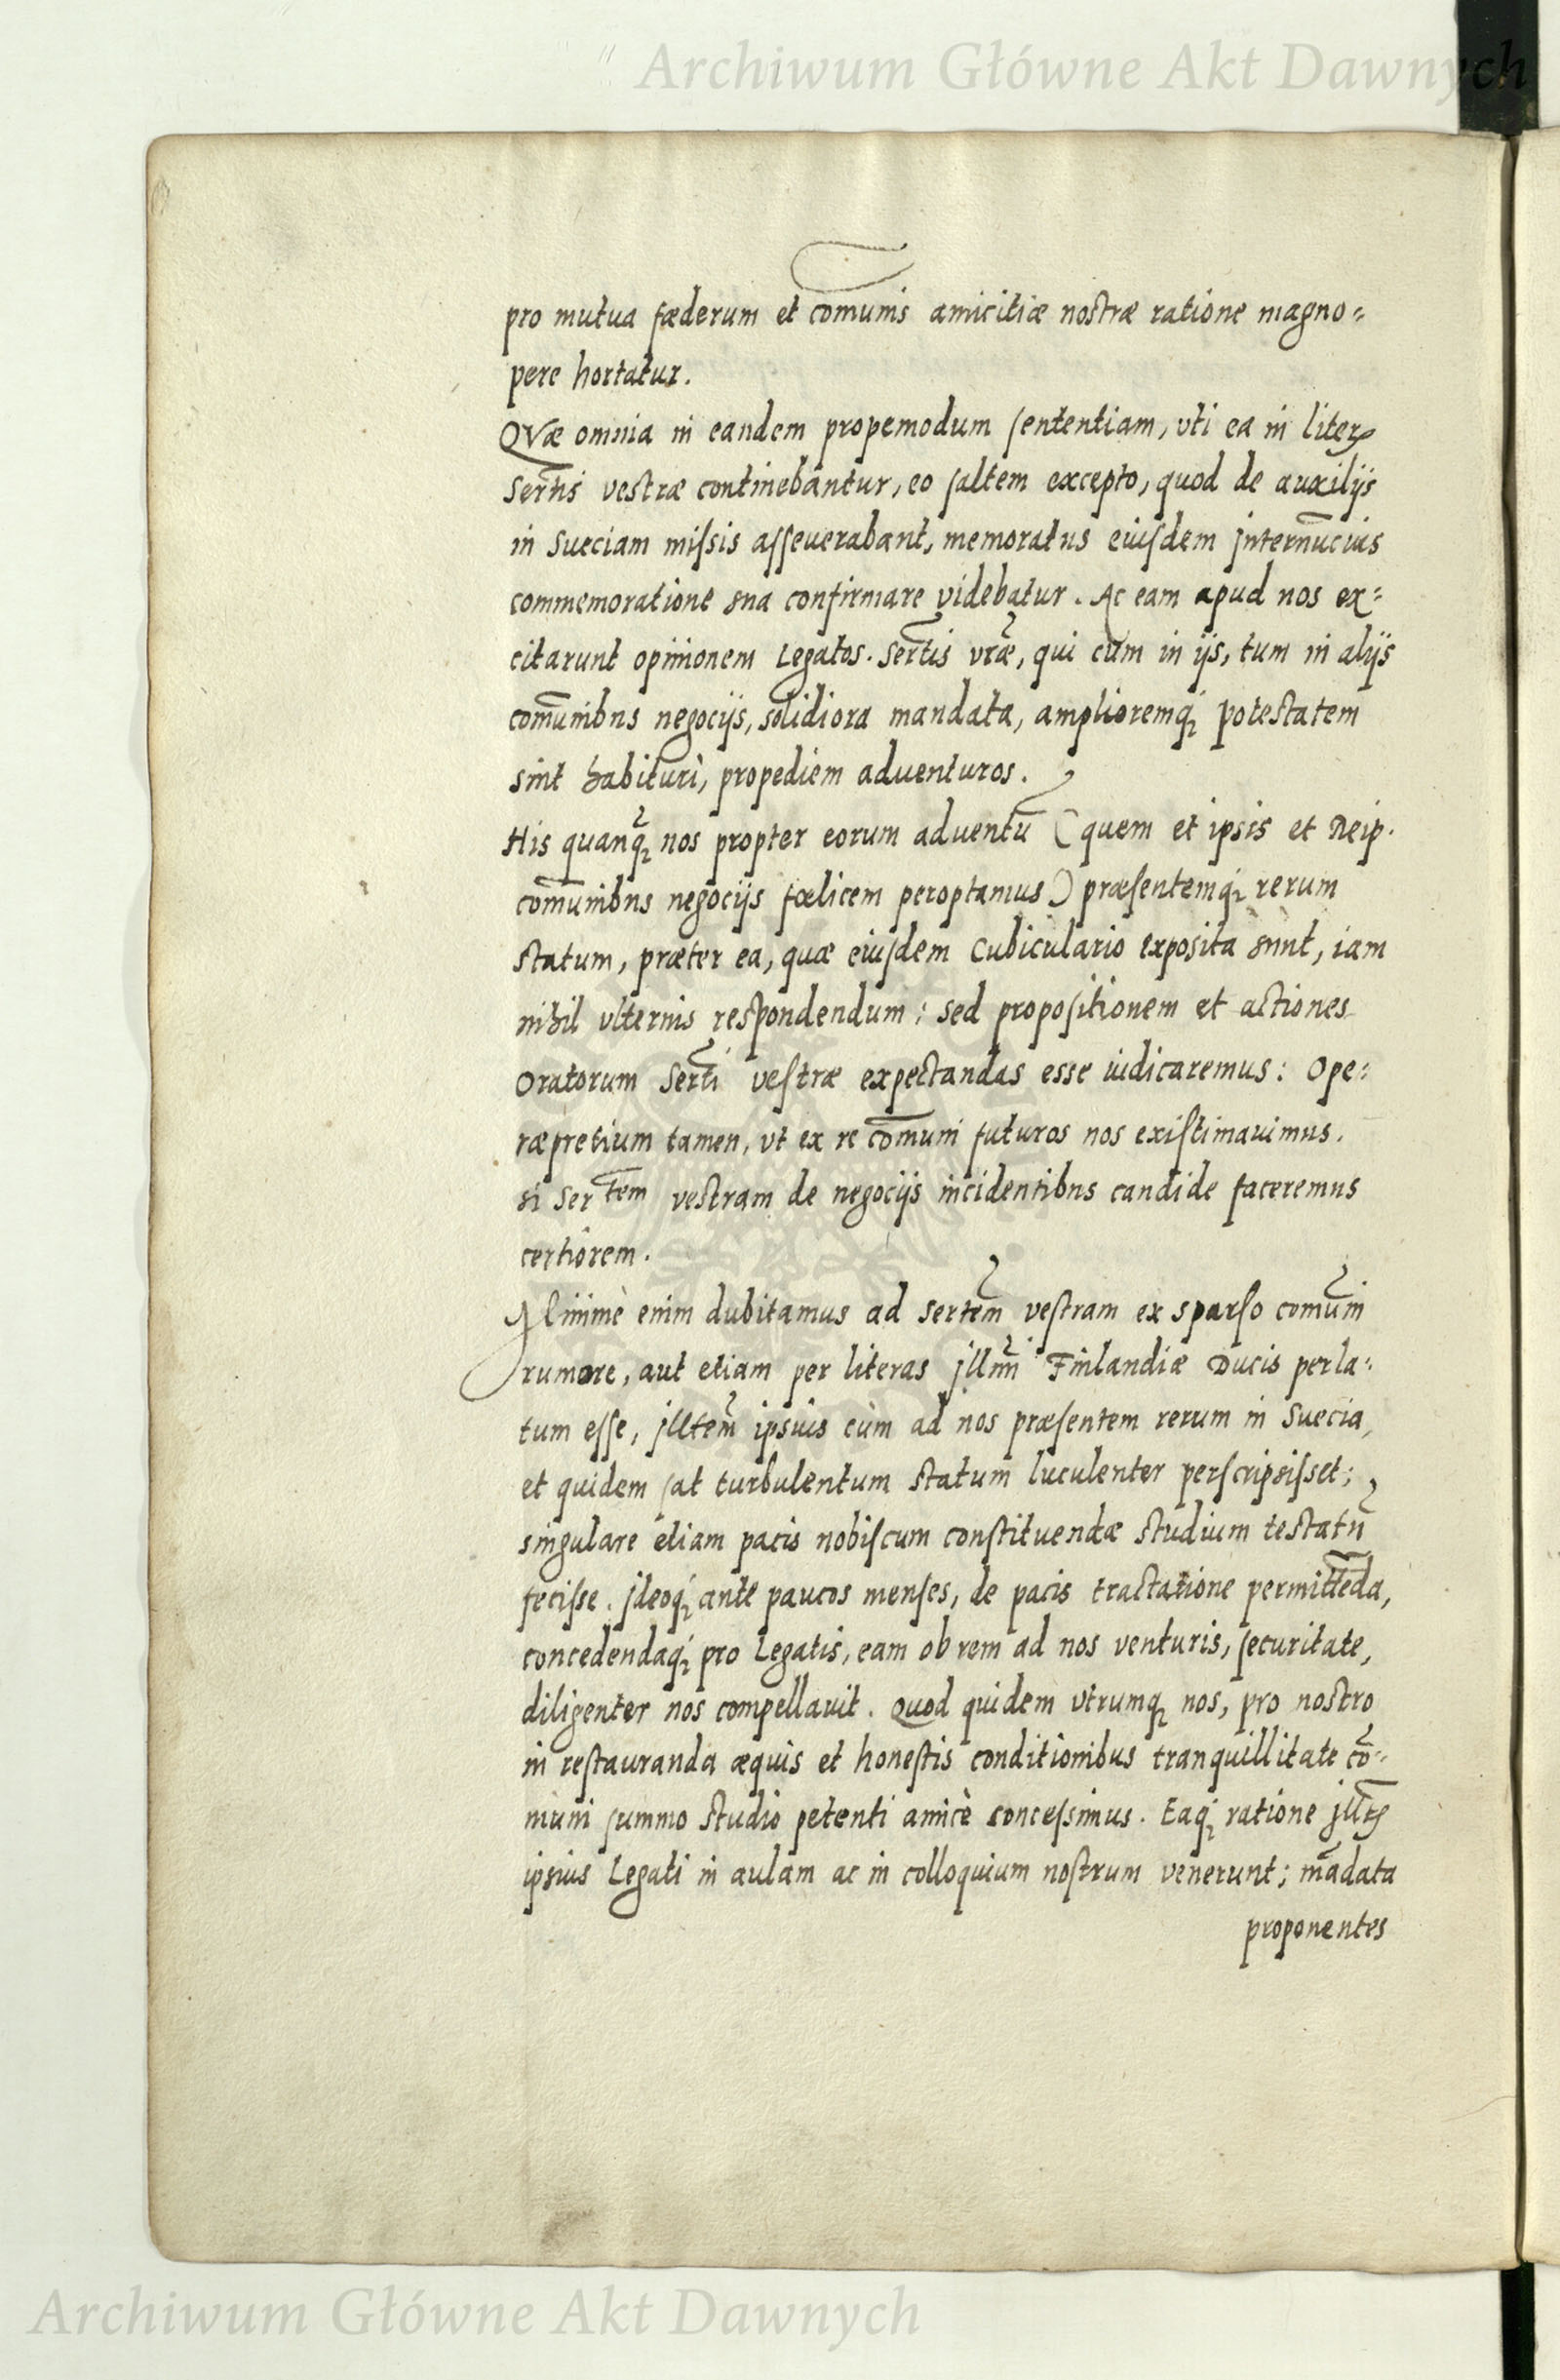 Archiwum Główne Akt Dawnych
pro mutua fæderum et comunis amicitiæ nostræ ratione magno=
pere hortatur.
QVæ omnia in eandem propemodum sententiam, vti ea in literis
Sertis vestræ continebantur, eo saltem excepto, quod de auxilijs
in Sueciam missis asseuerabant, memoratus eiusdem jnternucius
commemoratione sua confirmare videbatur. Ac eam apud nos ex=
citarunt opinionem Legatos. Sertis vræ, qui cum in ijs, tum in alijs
comunibus negocijs, solidiora mandata, amplioremq₃ potestatem
sint habituri, propediem aduenturos.
His quanq₃ nos propter eorum aduentū (quem et ipsis et Reip.
comunibus negocijs fœlicem peroptamus) præsentemq₃ rerum
statum, præter ea, quæ eiusdem Cubiculario exposita sunt, iam
nihil vlterius respondendum: sed propositionem et actiones
Oratorum Serti vestræ expectandas esse iudicaremus: Ope=
ræpretium tamen, vt ex re comuni futuros nos existimauimus.
si Sertem vestram de negocijs incidentibus candide faceremus
certiorem.
Minimè enim dubitamus ad Sertem vestram ex sparso comuni
rumore, aut etiam per literas jllmi Finlandiæ Ducis perla=
tum esse, jlltem ipsius cùm ad nos præsentem rerum in Suecia,
et quidem sat turbulentum statum luculenter perscripsisset;
singulare etiam pacis nobiscum constituendæ studium testatū
fecisse. jdeoq₃ ante paucos menses, de pacis tractatione permittēda,
concedendaq₃ pro Legatis, eam ob rem ad nos venturis, securitate,
diligenter nos compellauit. Quod quidem vtrumq₃ nos, pro nostro
in restauranda æquis et honestis conditionibus tranquillitate cō=
muni summo studio petenti amicè concessimus. Eaq₃ ratione jlltis
ipsius Legati in aulam ac in colloquium nostrum venerunt; mādata
proponentes
Archiwum Główne Akt Dawnych